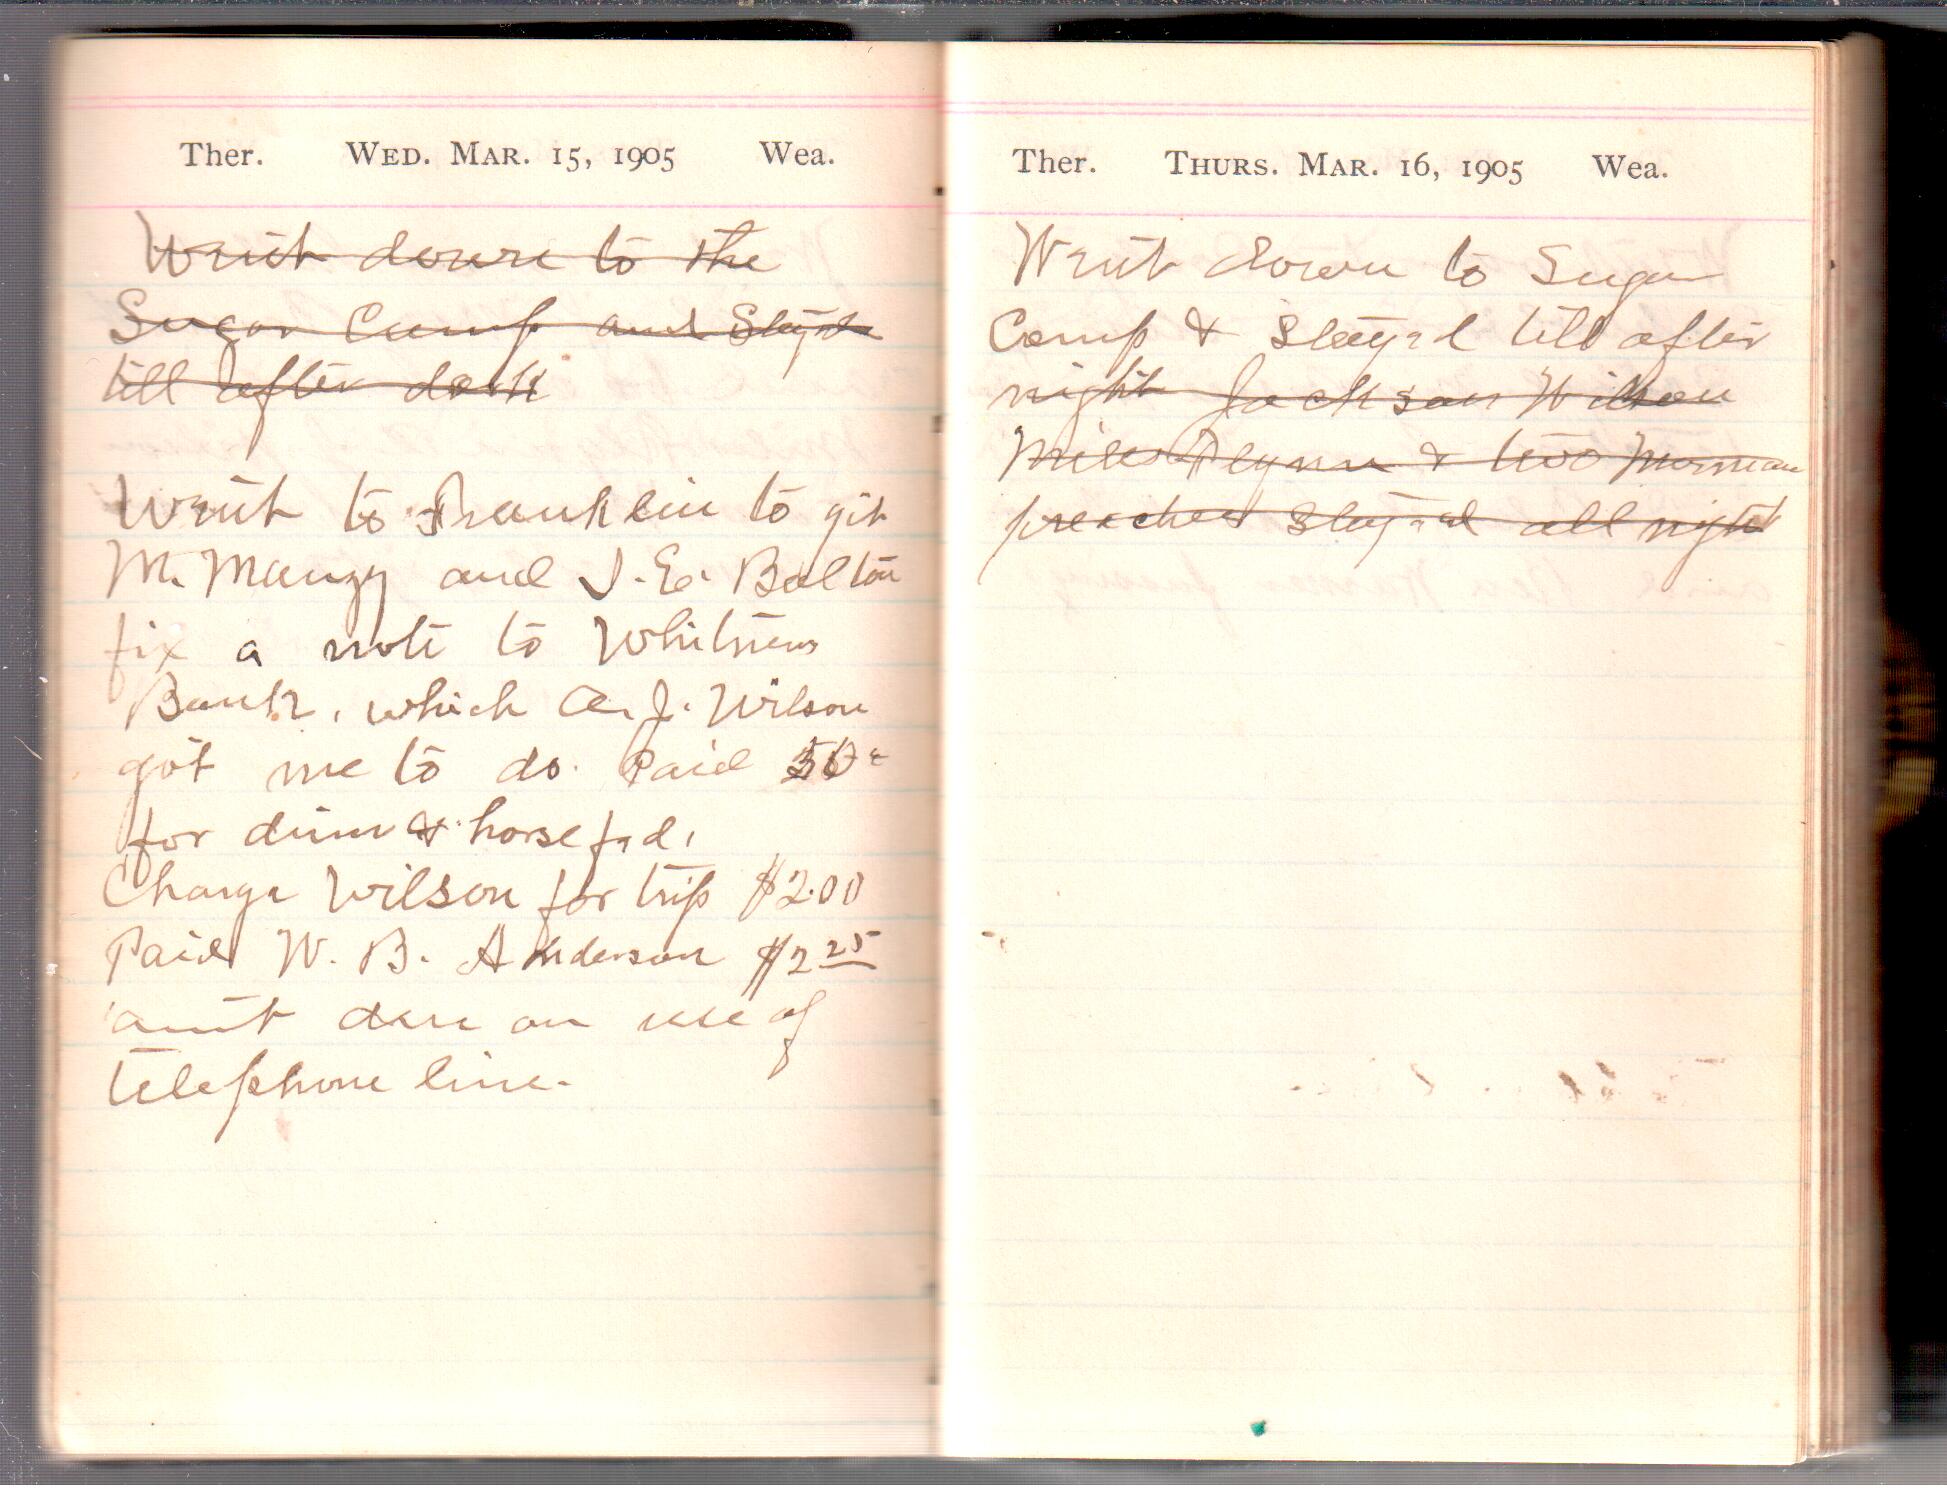 Ther. WED. MAR. 15, 1905 Wea.
Went down to the
Sugar Camp and Stayd
till after dark
Went to Franklin to git
M. Mauzy and J. E. Bolton
fix a note to
Bank, which A. J. Wilson
got me to do. Paid 50c
for dinn & horse fed.
Charge Wilson for trip $2.00
Paid W. B. Anderson $2 25
amt due on use of
telephone line.
Ther. THURS. MAR. 16, 1905 Wea.
Went down to Sugar
Camp & Stayed till after
night Jackson Wilson
Flynn & two Morman
preacher Stayed all night